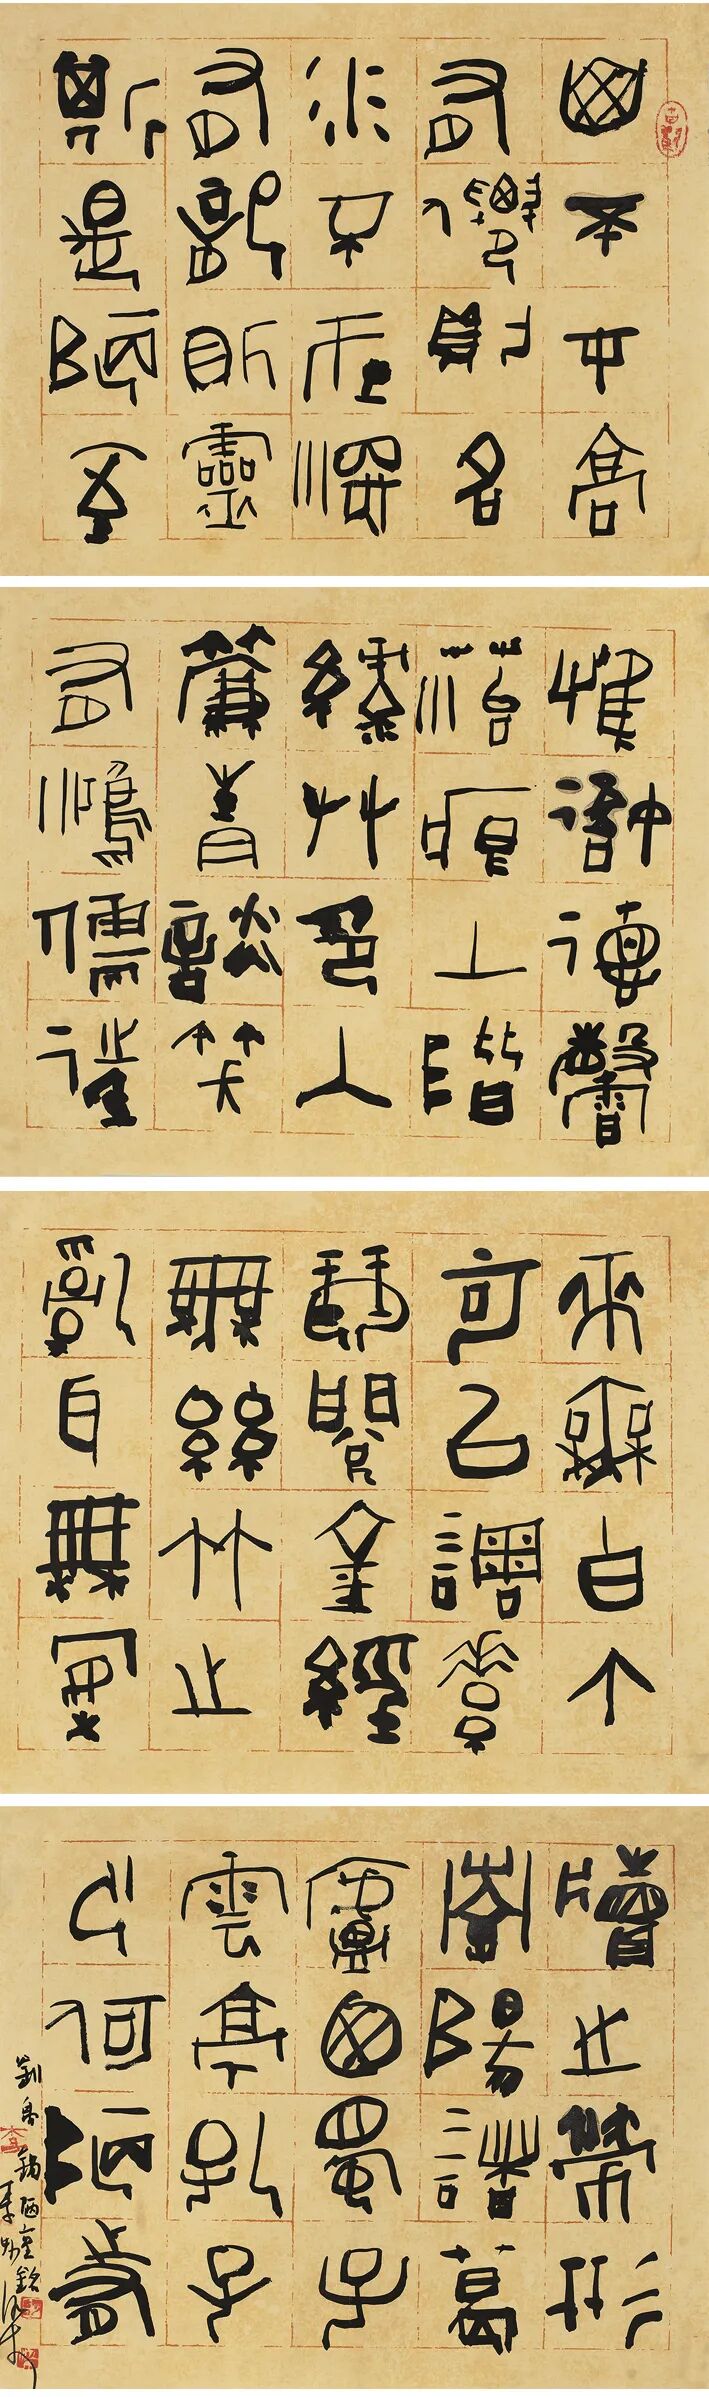 山不在高
有僊則名
水不在深
有龍則靈
斯是陋室
惟吾德馨
苔痕上階
綠艸色入
簾青談笑
有鴻儒往
來無白丁
可以調素
琴閱金經
無絲竹之
亂耳無案
牘之勞形
南陽諸葛
廬西蜀子
雲亭孔子
云何陋之有
劉禹錫陋室銘